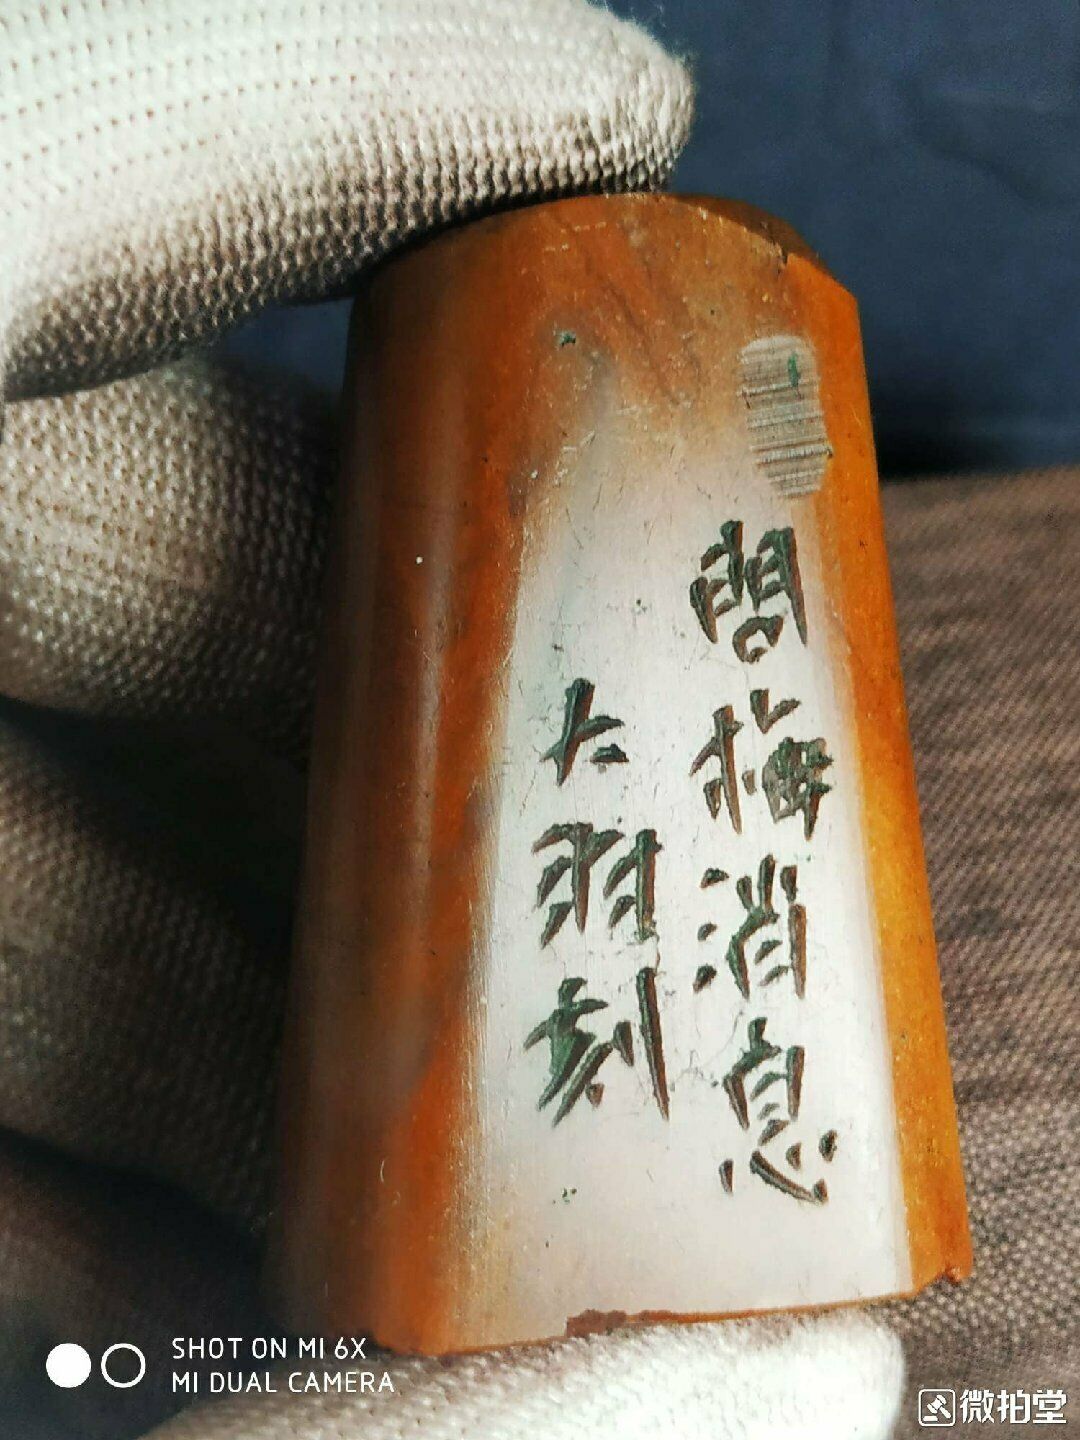 問梅消息
大羽刻
SHOT ON MI 6X
MI DUAL CAMERA
微拍堂